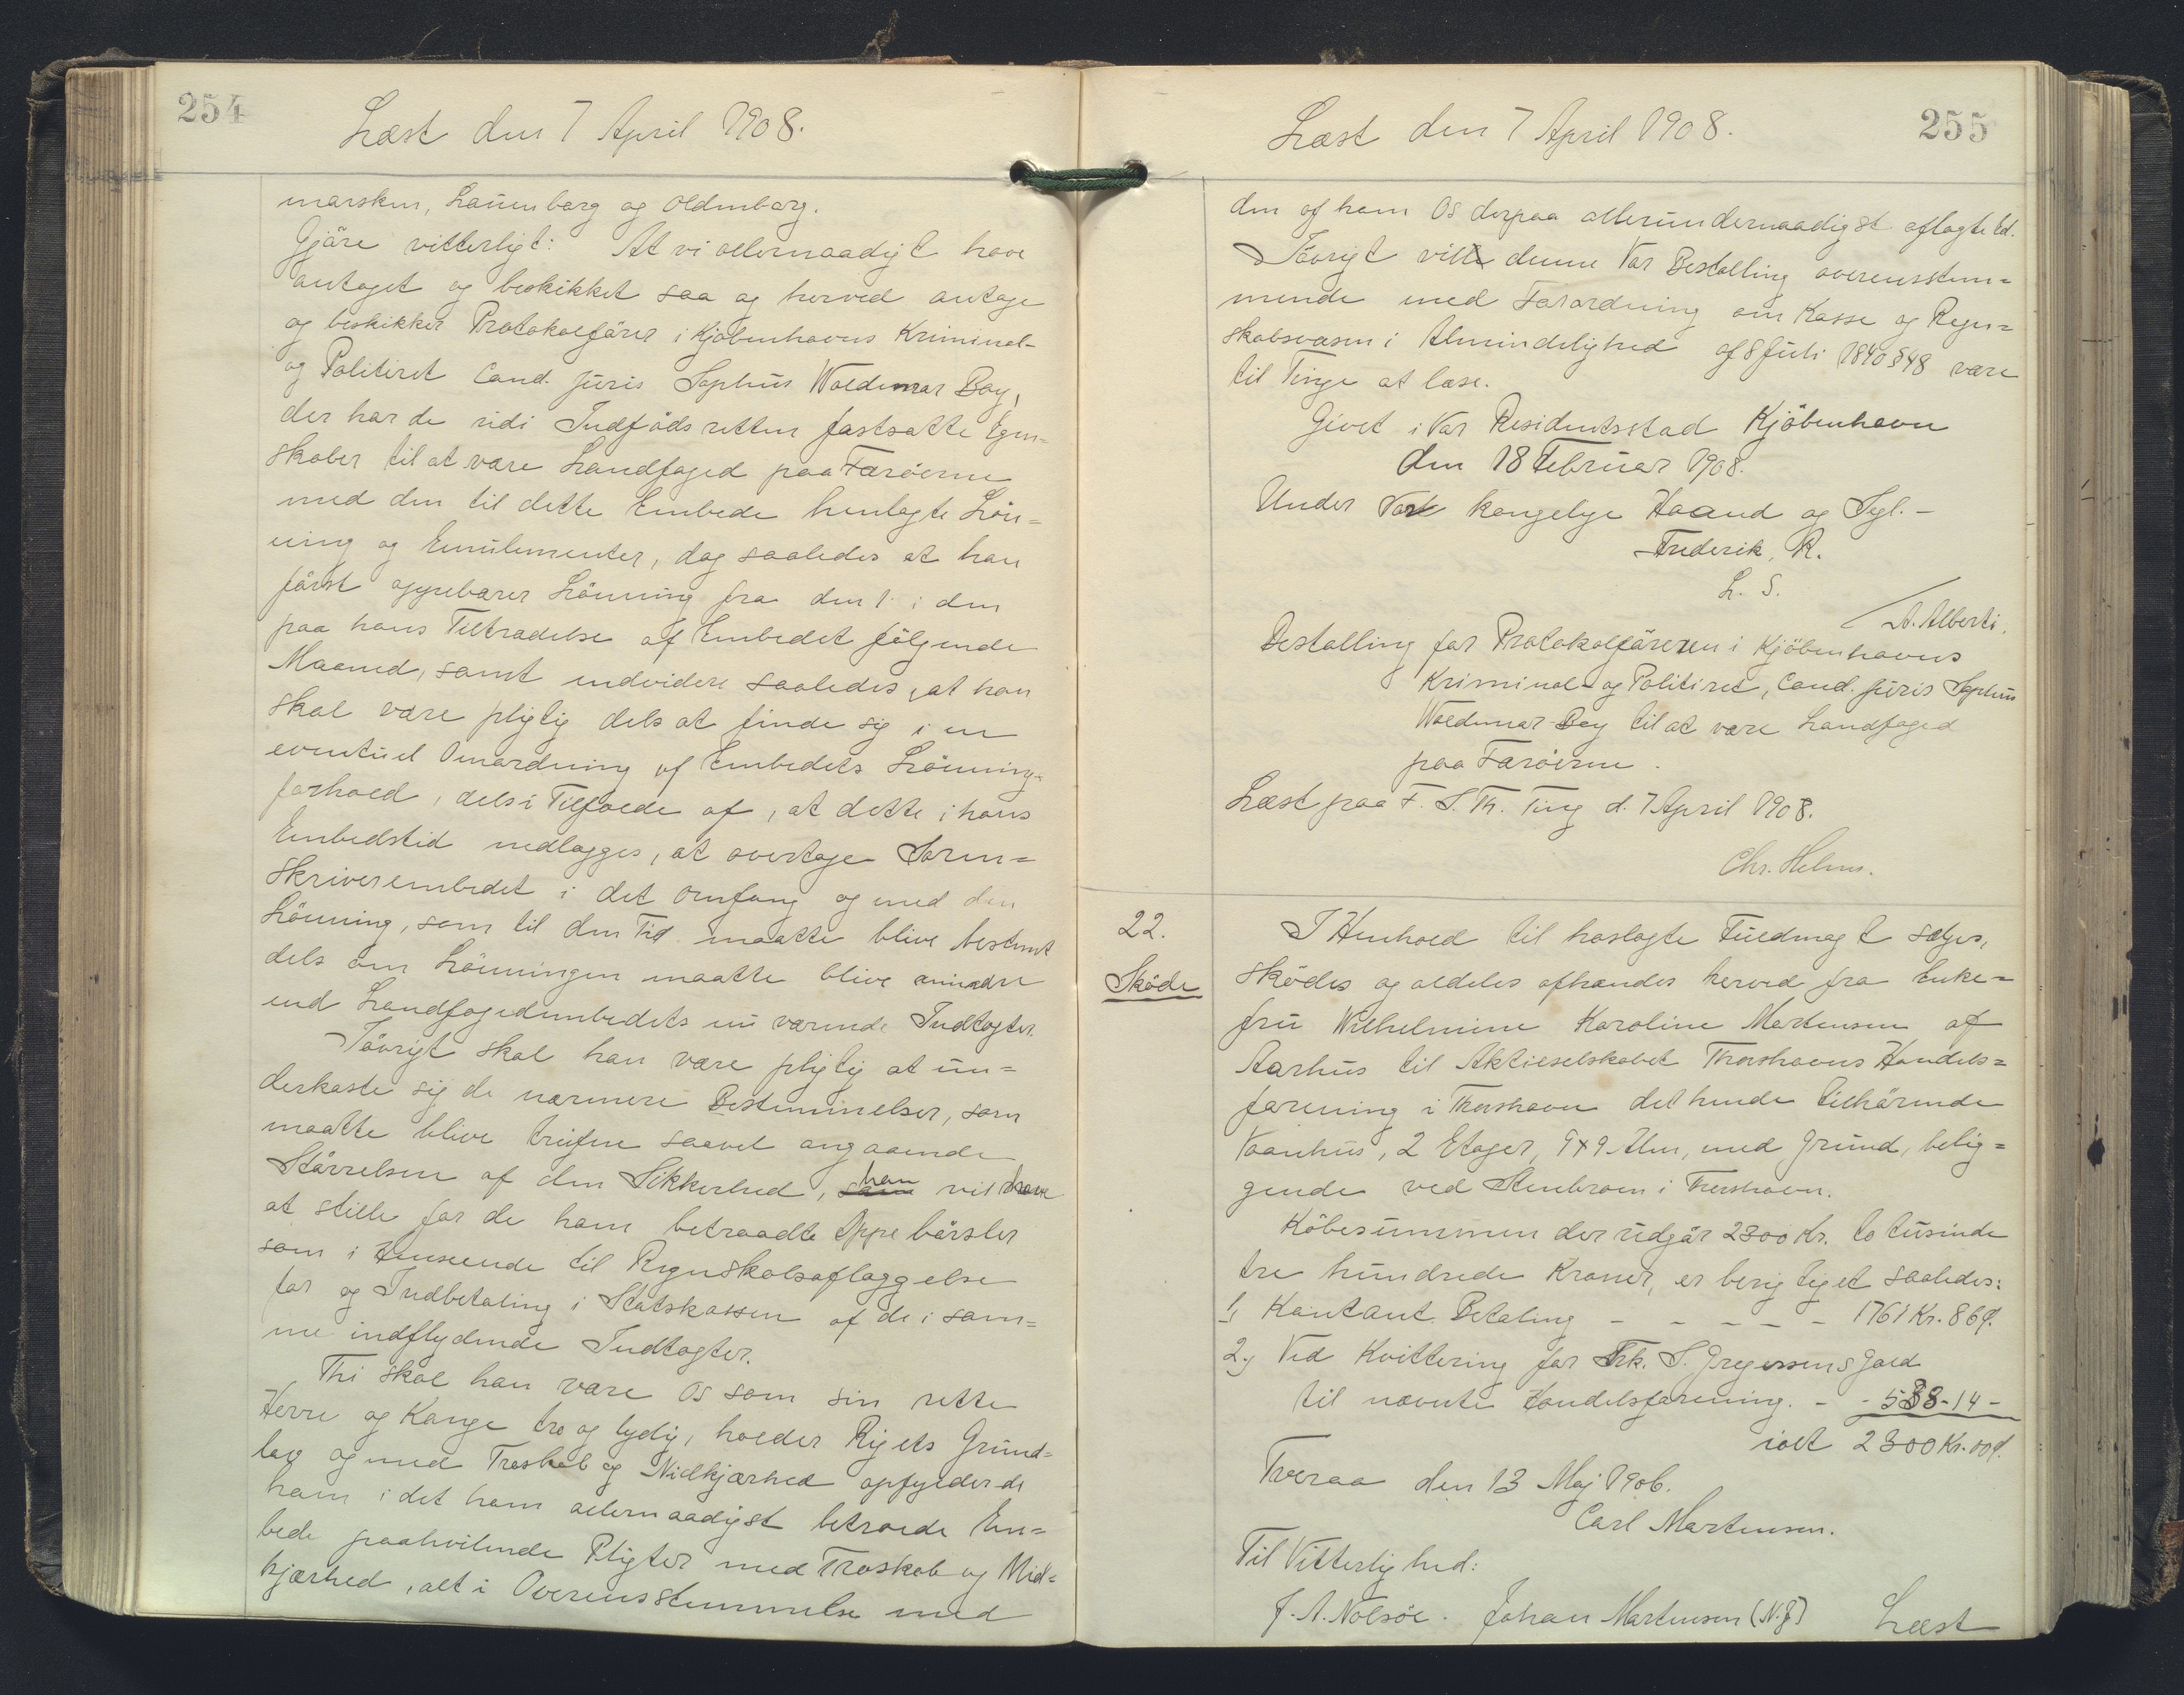 254
Læst den 7 April 1908.
marsken, Lauenborg og Oldenborg.
Gjöre vitterligt: At vi allernaadigst have
antaget og beskikket saa og herved antage
og beskikker Protokolförer i Kjöbenhavns Kriminal-
og Politiret Cand. juris Sophus Waldemar Bay,
der har de ved i Indfödsretten fastsatte Egen-
skaber til at være Landfoged paa Færöerne
med den til dette Embede henlagte Lön=
ning og Emulementer, dog saaledes at han
först oppebærer Lönning fra den 1. i den
paa hans Tiltrædelse af Embedet fölgende
Maaned, samt endvidere saaledes, at han
skal være pligtig dels at finde sig i en
eventuel Omordning af Embedets Lönnings-
forhold, dels i Tilfælde af, at dette i hans
Embedstid nedlægges, at overtage Soren=
skriverembedet i det Omfang og med den
Lönning, som til den Tid maatte blive bestemt
dels om Lönningen maatte blive mindre
end Landfogedembedets nu værende Indtægter.
Iövrigt skal han være pligtig at un=
derkaste sig de nærmere Bestemmelser, som
maatte blive trufne saavel angaaende
Störrelsen af den Sikkerhed, han vil have
at stille for de ham betroede Oppebörsler
som i Henseende til Regnskabsaflæggelse
for og Indbetaling i Statskassen af de i sam=
me indflydende Indtægter.
Thi skal han være Os som sin rette
Herre og Konge tro og lydig, holder Rigets Grund=
lov og med Troskab og Nidkjærhed opfylder de
ham i det ham allernaadigst betroede Em=
bede paahvilende Pligter med Troskab og Nid=
kjærhed, alt i Overensstemmelse med
255
Læst den 7 April 1908.
den af ham Os derpaa allerundernaadigst aflagte Ed.
Iövrigt vil denne Vor Bestalling overensstem=
mende med Forordning om Kasse og Regn=
skabsvæsen i Almindelighed af 8 Juli 1840 § 48 være
til Tinge at læse.
Givet i Vor Residentsstad Kjöbenhavn
den 18 Februar 1908.
Under Vor kongelige Haand og Segl.-
Frederik, R.
L. S.
A. Alberti.
Bestalling for Protokolföreren i Kjöbenhavns
Kriminal- og Politiret, Cand. juris Sophus
Waldemar Bay til at være Landfoged
paa Færöerne.
Læst paa F. S. Th. Ting d. 7 April 1908.
Chr. Helms.
22.
Sköde
I Henhold til haslagte Fuldmagt sælges,
sködes og aldeles afhændes herved fra Enke=
fru Wilhelmine Karoline Mortensen af
Aarhus til Aktieselskabet Thorshavns Handels=
forening i Thorshavn det hende tilhörende
Vaanhus, 2 Etager, 9x9 Alen, med Grund, belig=
gende ved Stenbroen i Thorshavn.
Köbesummen der udgör 2300 Kr. to tusinde
tre hundrede Kroner, er berigtiget saaledes:
1, Kontant Betaling - - - - - 1761 Kr. 86 Ø.
2, Ved Kvittering for Frk. S. Gregersens Gæld
til nævnte Handelsforening. - - 538-14-
ialt 2300 Kr. 00 Ø.
Tveraa den 13 Maj 1906.
Carl Mortensen.
Til Vitterlighed:
J. A. Nolsöe. Johan Martensen (N. J.) Læst